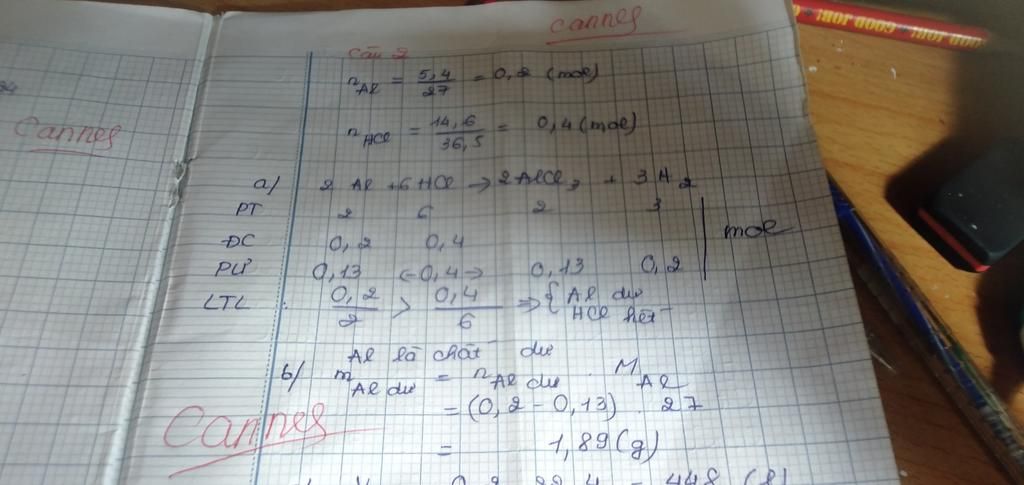 Cannes
GOOD JOB!
Câu 2
n Al = 5,4/27 = 0,2 (mol)
n HCl = 14,6/36,5 = 0,4 (mol)
Cannes
a/ 2 Al + 6 HCl → 2 AlCl3 + 3 H2
PT 2 6 2 3
ĐC 0,2 0,4 mol
PƯ 0,13 ← 0,4 → 0,13 0,2
LTL : 0,2/2 > 0,4/6 => { Al dư
HCl hết
Al là chất dư
b/ m Al dư = n Al dư . M Al
= (0,2 - 0,13) . 27
Cannes
= 1,89 (g)